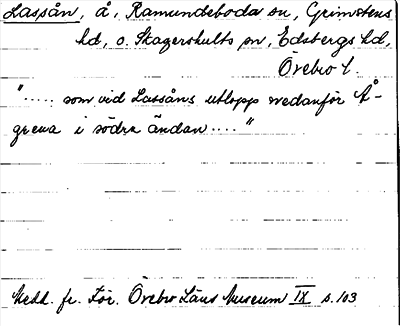 Lassån, å, Ramundeboda sn, Grimstens
hd, o. Skagershults sn, Edsbergs hd,
Örebro l.
"..... som vid Lassåns utlopp nedanför Å-
grena i södra ändan ...."
Medd. fr. För. Örebro Läns Museum IX s. 103